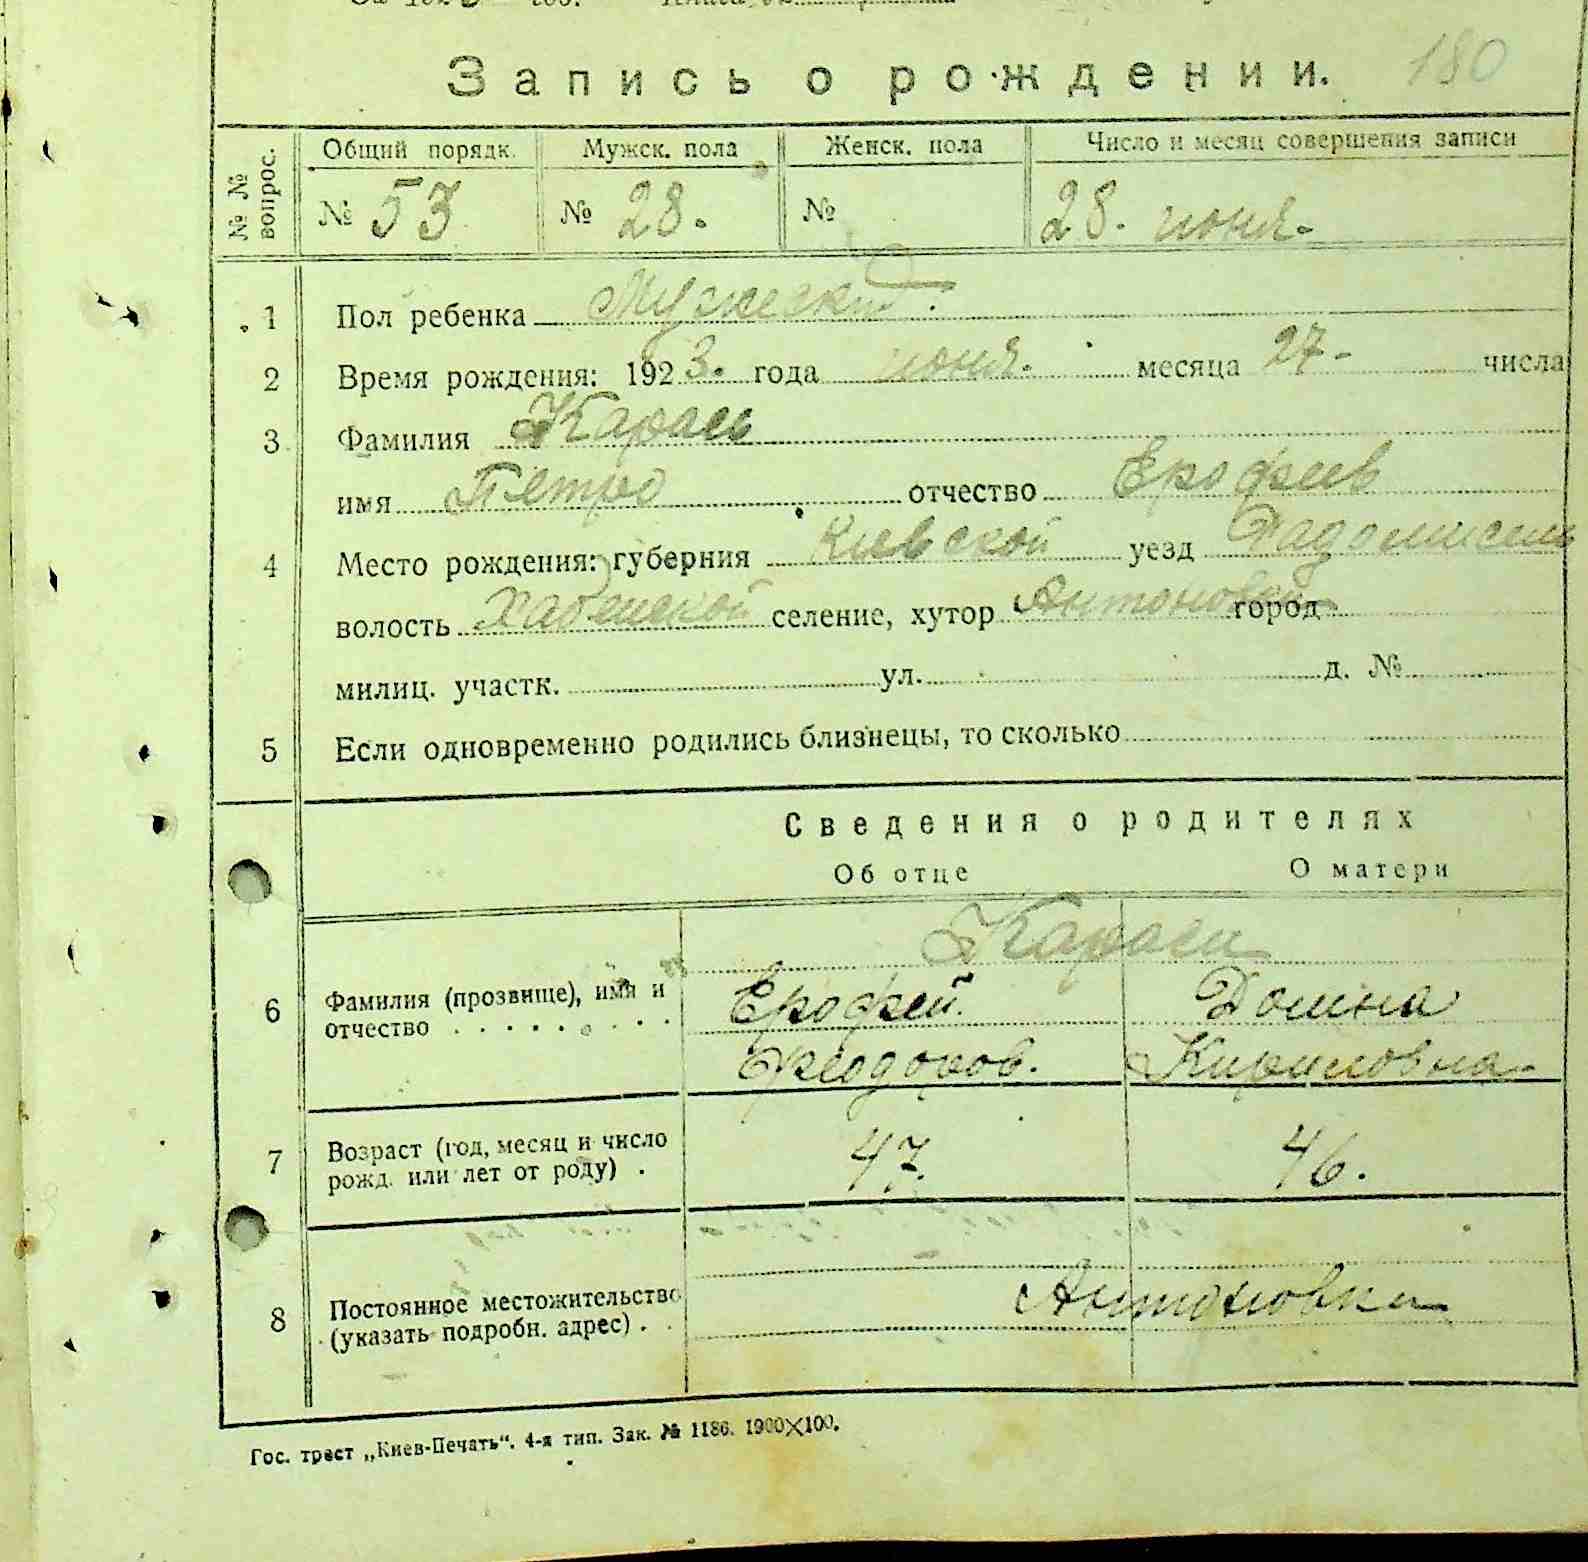 Запись о рождении. 180
№ № вопрос. Общий порядк. Мужск. пола Женск. пола Число и месяц совершения записи
№ 53 № 28. № 28. июня.
1 Пол ребенка Мужеский.
2 Время рождения: 1923. года июня. месяца 27- числа
3 Фамилия Карась
имя Петро отчество Ерофеев
4 Место рождения: губерния Киевской уезд Радомисель
волость Хабенской селение, хутор Антоновка город
милиц. участк. ул. д. №
5 Если одновременно родились близнецы, то сколько
Сведения о родителях
Об отце О матери
Караси
6 Фамилия (прозвище), имя и Ерофей. Домна
отчество Феодоров. Кириловна.
7 Возраст (год, месяц и число 47. 46.
рожд. или лет от роду) .
8 Постоянное местожительство Антоновка
(указать подробн. адрес) .
Гос. трест „Киев-Печать“. 4-я тип. Зак. № 1186. 1900×100.